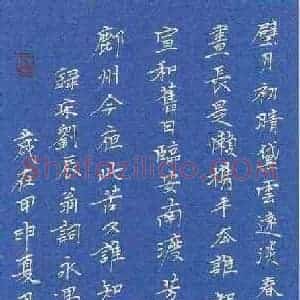 璧月初晴黛雲遠淡春
晝長是懶攜手去誰知
宣和舊日臨安南渡芳
鄜州今夜此苦又誰知
錄宋劉辰翁詞永遇
歲在甲申夏
Shufaziliao.com